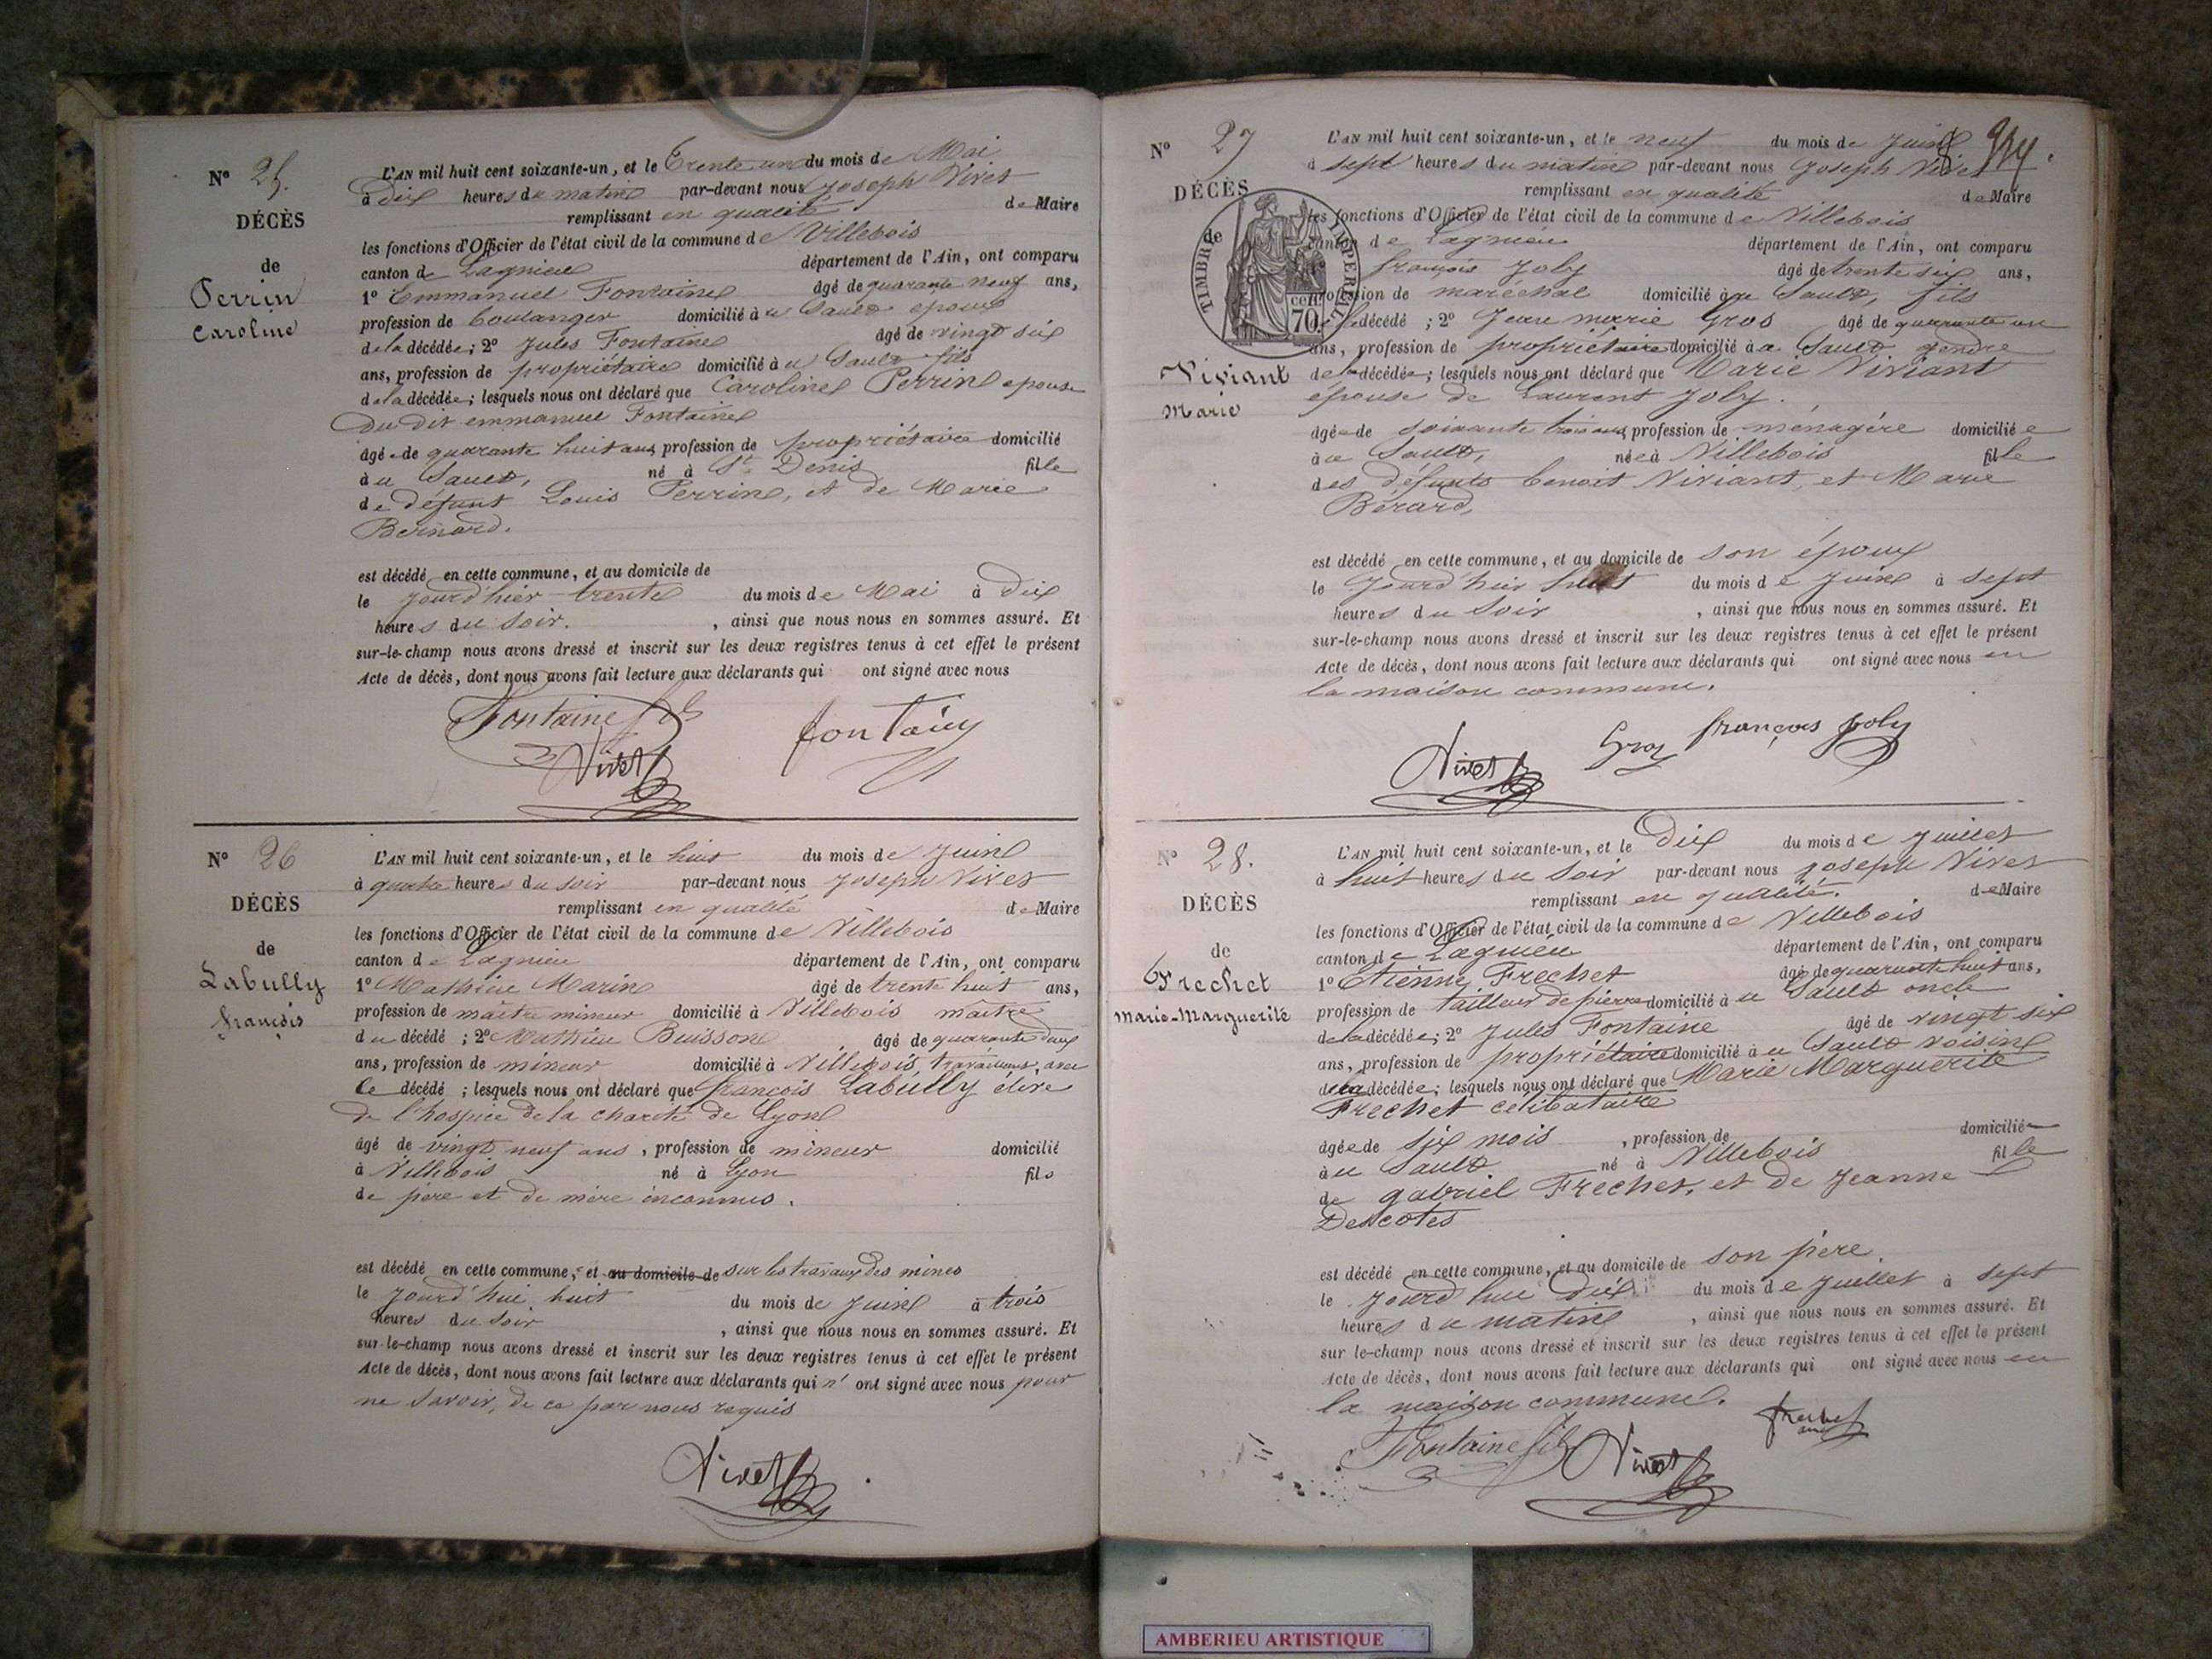 N° 25.
DÉCÈS
de
Perrin
Caroline
L'AN mil huit cent soixante-un, et le Trente un du mois de Mai
à dix heures du matin par-devant nous Joseph Vivet
remplissant en qualité de Maire
les fonctions d'Officier de l'état civil de la commune de Villebois
canton de Lagnieu département de l'Ain, ont comparu
1° Emmanuel Fontaine âgé de quarante neuf ans,
profession de boulanger domicilié à u Sault époux
de la décédée; 2° Jules Fontaine âgé de vingt six
ans, profession de propriétaire domicilié à u Sault fils
de la décédée; lesquels nous ont déclaré que Caroline Perrin épouse
du dit emmanuel Fontaine
âgée de quarante huit ans profession de propriétaire domicilié
à u Sault, né à St Denis fille
de défunt Louis Perrin, et de Marie
Bernard.
est décédé en cette commune, et au domicile de
le jourd'hier trente du mois de Mai à dix
heures du soir. , ainsi que nous nous en sommes assuré. Et
sur-le-champ nous avons dressé et inscrit sur les deux registres tenus à cet effet le présent
Acte de décès, dont nous avons fait lecture aux déclarants qui ont signé avec nous
Fontaine fils fontaine
Vivet
N° 26
DÉCÈS
de
Labully
françois
L'AN mil huit cent soixante-un, et le huit du mois de Juin
à quatre heures du soir par-devant nous Joseph Vivet
remplissant en qualité de Maire
les fonctions d'Officier de l'état civil de la commune de Villebois
canton de Lagnieu département de l'Ain, ont comparu
1° Mathieu Marin âgé de trente huit ans,
profession de maître mineur domicilié à Villebois maître
du décédé ; 2° Mathieu Buisson âgé de quarante deux
ans, profession de mineur domicilié à Villebois, travailleurs avec
le décédé ; lesquels nous ont déclaré que françois Labully élève
de l'hospice de la charité de Lyon
âgé de vingt neuf ans , profession de mineur domicilié
à Villebois né à Lyon fils
de père et de mère inconnus.
est décédé en cette commune, et au domicile de sur les travaux des mines
le jourd'hui huit du mois de Juin à trois
heures du soir , ainsi que nous nous en sommes assuré. Et
sur-le-champ nous avons dressé et inscrit sur les deux registres tenus à cet effet le présent
Acte de décès, dont nous avons fait lecture aux déclarants qui n' ont signé avec nous pour
ne savoir, de ce par nous requis
Vivet
N° 27
DÉCÈS
de
TIMBRE IMPÉRIAL
70 cent
Viviant
Marie
L'AN mil huit cent soixante-un, et le neuf du mois de Juin
à sept heures du matin par-devant nous Joseph Vivet
remplissant en qualité de Maire
les fonctions d'Officier de l'état civil de la commune de Villebois
canton de Lagnieu département de l'Ain, ont comparu
1° françois Joly âgé de trente six ans,
profession de maréchal domicilié à u Sault, fils
de la décédé ; 2° Jean marie Gros âgé de quarante un
ans, profession de propriétaire domicilié à u Sault gendre
de la décédée; lesquels nous ont déclaré que Marie Viviant
épouse de Laurent Joly.
âgée de soixante trois ans profession de ménagère domiciliée
à u Sault, née à Villebois fille
des défunts benoit Viviant, et Marie
Bérard,
est décédé en cette commune, et au domicile de son époux
le Jourd'hier huit du mois de Juin à sept
heures du soir , ainsi que nous nous en sommes assuré. Et
sur-le-champ nous avons dressé et inscrit sur les deux registres tenus à cet effet le présent
Acte de décès, dont nous avons fait lecture aux déclarants qui ont signé avec nous en
la maison commune.
Vivet Gros françois Joly
N° 28.
DÉCÈS
de
Frechet
Marie-Marguerite
L'AN mil huit cent soixante-un, et le Dix du mois de Juillet
à huit heures du soir par-devant nous Joseph Vivet
remplissant en qualité. de Maire
les fonctions d'Officier de l'état civil de la commune de Villebois
canton de Lagnieu département de l'Ain, ont comparu
1° Etienne Frechet âgé de quarante huit ans,
profession de tailleur de pierre domicilié à u Sault oncle
de la décédée; 2° Jules Fontaine âgé de vingt six
ans, profession de propriétaire domicilié à u Sault voisin
de la décédée; lesquels nous ont déclaré que Marie Marguerite
Frechet célibataire
âgée de six mois , profession de domiciliée
à u Sault né à Villebois fille
de gabriel Frechet, et de Jeanne
Descotes
est décédé en cette commune, et au domicile de son père.
le jourd'hui dix du mois de Juillet à sept
heures du matin , ainsi que nous nous en sommes assuré. Et
sur le-champ nous avons dressé et inscrit sur les deux registres tenus à cet effet le présent
Acte de décès, dont nous avons fait lecture aux déclarants qui ont signé avec nous en
la maison commune.
Fontaine fils Vivet frechet
AMBERIEU ARTISTIQUE